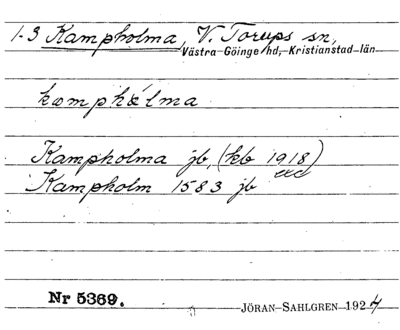 1-3 Kampholma, V. Torups sn,
Västra Göinge hd, Kristianstad län
Kampholma jb, (kb 1918)
Kampholm 1583 jb
Nr 5369.
JÖRAN SAHLGREN 1924